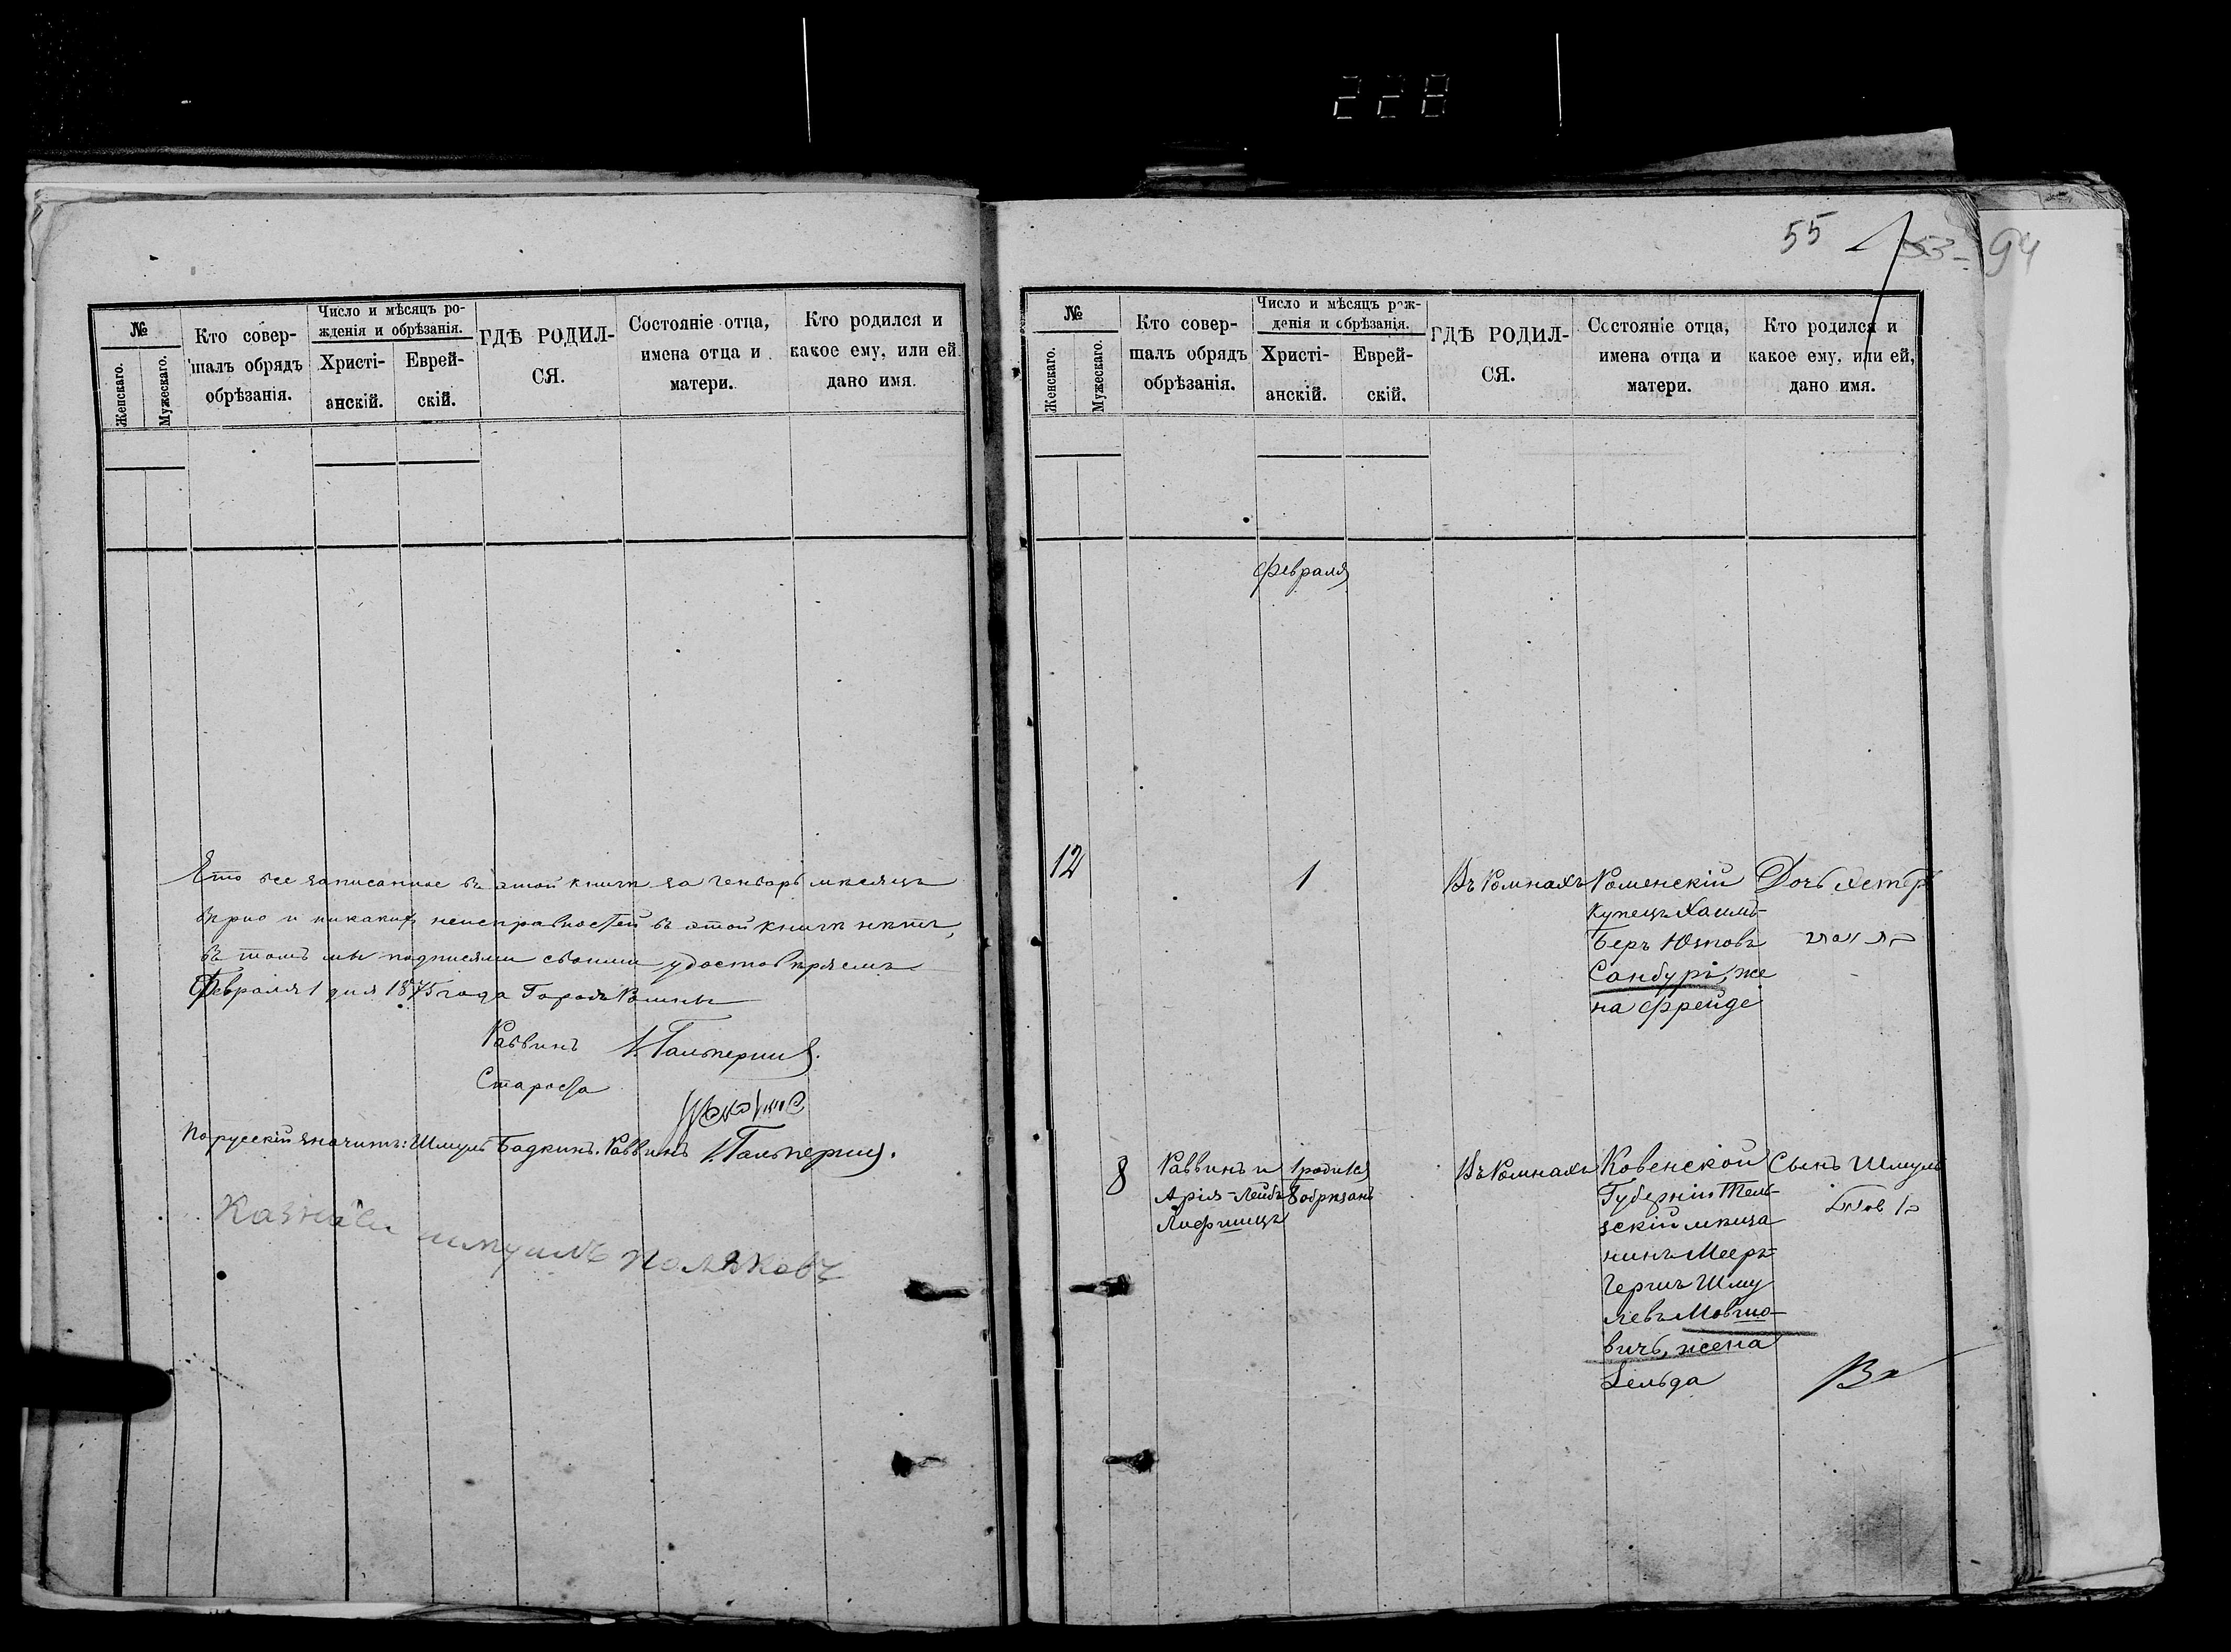 228
№
Женскаго.
Мужескаго.
Кто совер-
шалъ обрядъ
обрѣзанія.
Число и мѣсяцъ ро-
жденія и обрѣзанія.
Христі-
анскій.
Еврей-
скій.
ГДѢ РОДИЛ-
СЯ.
Состояніе отца,
имена отца и
матери.
Кто родился и
какое ему, или ей
дано имя.
Что все записанное въ этой книги за Генварь мѣсяцъ
вѣрно и никакихъ неисправностей въ этой книги нѣтъ,
въ томъ мы подписями своими удостовѣряемъ
Февраля 1 дня 1875 года Городъ Ромны
Раввинъ І. Гальперинъ.
Староста
По русскій значитъ: Шмуль Бадкинъ. Раввинъ І. Гальперинъ.
Казначей шмуилъ Поляковъ
55
53
94
№
Женскаго.
Мужескаго.
Кто совер-
шалъ обрядъ
обрѣзанія.
Число и мѣсяцъ рож-
денія и обрѣзанія.
Христі-
анскій.
Еврей-
скій.
ГДѢ РОДИЛ-
СЯ.
Состояніе отца,
имена отца и
матери.
Кто родился и
какое ему, или ей,
дано имя.
Февраля
12
1
Въ Ромнахъ
Роменскій
купецъ Хаимъ-
Беръ
Сандуръ, же
на Фрейде
Дочь Эстеръ
8
Раввинъ и
Арія-Лейбъ
Лифшицъ
1 родился
8 обрѣзанъ
Въ Ромнахъ
Ковенской
Губерніи Тель-
зскій мѣща
нинъ Мееръ-
Гершъ Шму
левъ Мовшо-
вичъ, жена
Зельда
Сынъ Шмуль